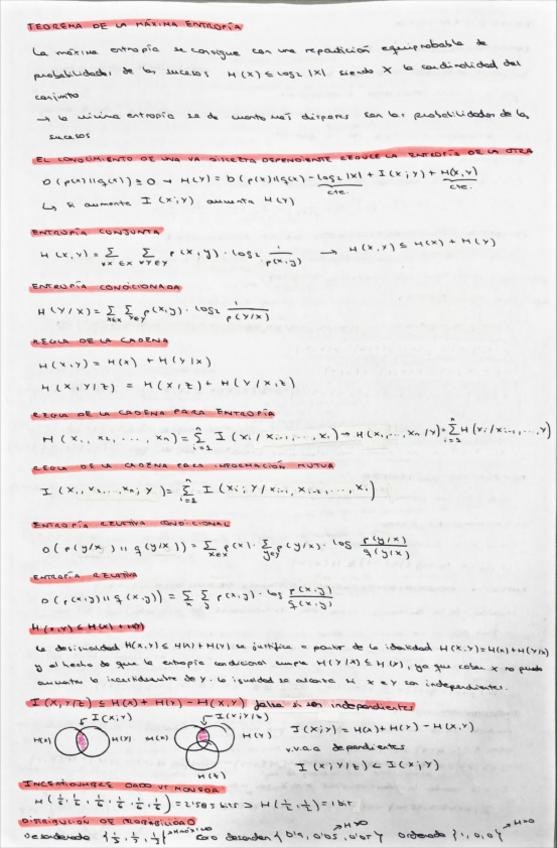 TEOREMA DE LA MÁXIMA ENTROPÍA
La máxima entropía se consigue con una repartición equiprobable de
probabilidades de los sucesos H(X) ≤ LOG2 |X| siendo X la cardinalidad del
conjunto
→ La mínima entropía se da cuanto más dispares son las probabilidades de los
sucesos
EL CONOCIMIENTO DE UNA VA DISCRETA DEPENDIENTE REDUCE LA ENTROPÍA DE LA OTRA
D(p(x)||q(x)) ≥ 0 → H(Y) = D(p(x)||q(x) - log2 |X| + I(X;Y) + H(X,Y)
cte. cte.
↳ Si aumenta I(X;Y) aumenta H(Y)
ENTROPÍA CONJUNTA
H(X,Y) = Σ∀x∈X Σ∀y∈Y p(x,y) · log2 1/p(x,y) → H(X,Y) ≤ H(X) + H(Y)
ENTROPÍA CONDICIONADA
H(Y/X) = Σx∈X Σy∈Y p(x,y) · log2 1/p(Y/X)
REGLA DE LA CADENA
H(X,Y) = H(X) + H(Y/X)
H(X,Y/Z) = H(X/Z) + H(Y/X,Z)
REGLA DE LA CADENA PARA ENTROPÍA
H(X1, X2, ..., Xn) = Σ i=1 n I(Xi/Xi-1, ..., X1) → H(X1, ..., Xn/Y) = Σ i=1 n H(Xi/Xi-1, ..., Y)
REGLA DE LA CADENA PARA INFORMACIÓN MUTUA
I(X1, X2, ..., Xn; Y) = Σ i=1 n I(Xi; Y/Xi-1, Xi-2, ..., X1)
ENTROPÍA RELATIVA CONDICIONAL
D(p(y/x) || q(y/x)) = Σx∈X p(x) · Σy∈Y p(y/x) · log p(y/x)/q(y/x)
ENTROPÍA RELATIVA
D(p(x,y) || q(x,y)) = Σx Σy p(x,y) · log p(x,y)/q(x,y)
H(X,Y) ≤ H(X) + H(Y)
La desigualdad H(X,Y) ≤ H(X) + H(Y) se justifica a partir de la identidad H(X,Y) = H(X) + H(Y/X)
y el hecho de que la entropía condicional cumple H(Y/X) ≤ H(Y), ya que saber X no puede
aumentar la incertidumbre de Y. La igualdad se alcanza si X e Y son independientes.
I(X;Y/Z) ≤ H(X) + H(Y) - H(X,Y) falsa si son independientes
I(X;Y) I(X;Y/Z) I(X;Y) = H(X) + H(Y) - H(X,Y)
H(X) H(Y) H(X) H(Y)
v.v.a.a dependientes
I(X;Y/Z) < I(X;Y)
H(Z)
INCERTIDUMBRE DADO VS MONEDA
H(1/6, 1/6, 1/6, 1/6, 1/6, 1/6) = 2'585 bits > H(1/2, 1/2) = 1 bit
DISTRIBUCIÓN DE PROBABILIDAD
Desordenado {1/3, 1/3, 1/3} → H máximo Caso desorden {0'9, 0'05, 0'05} → H>0 Ordenado {1,0,0} → H=0